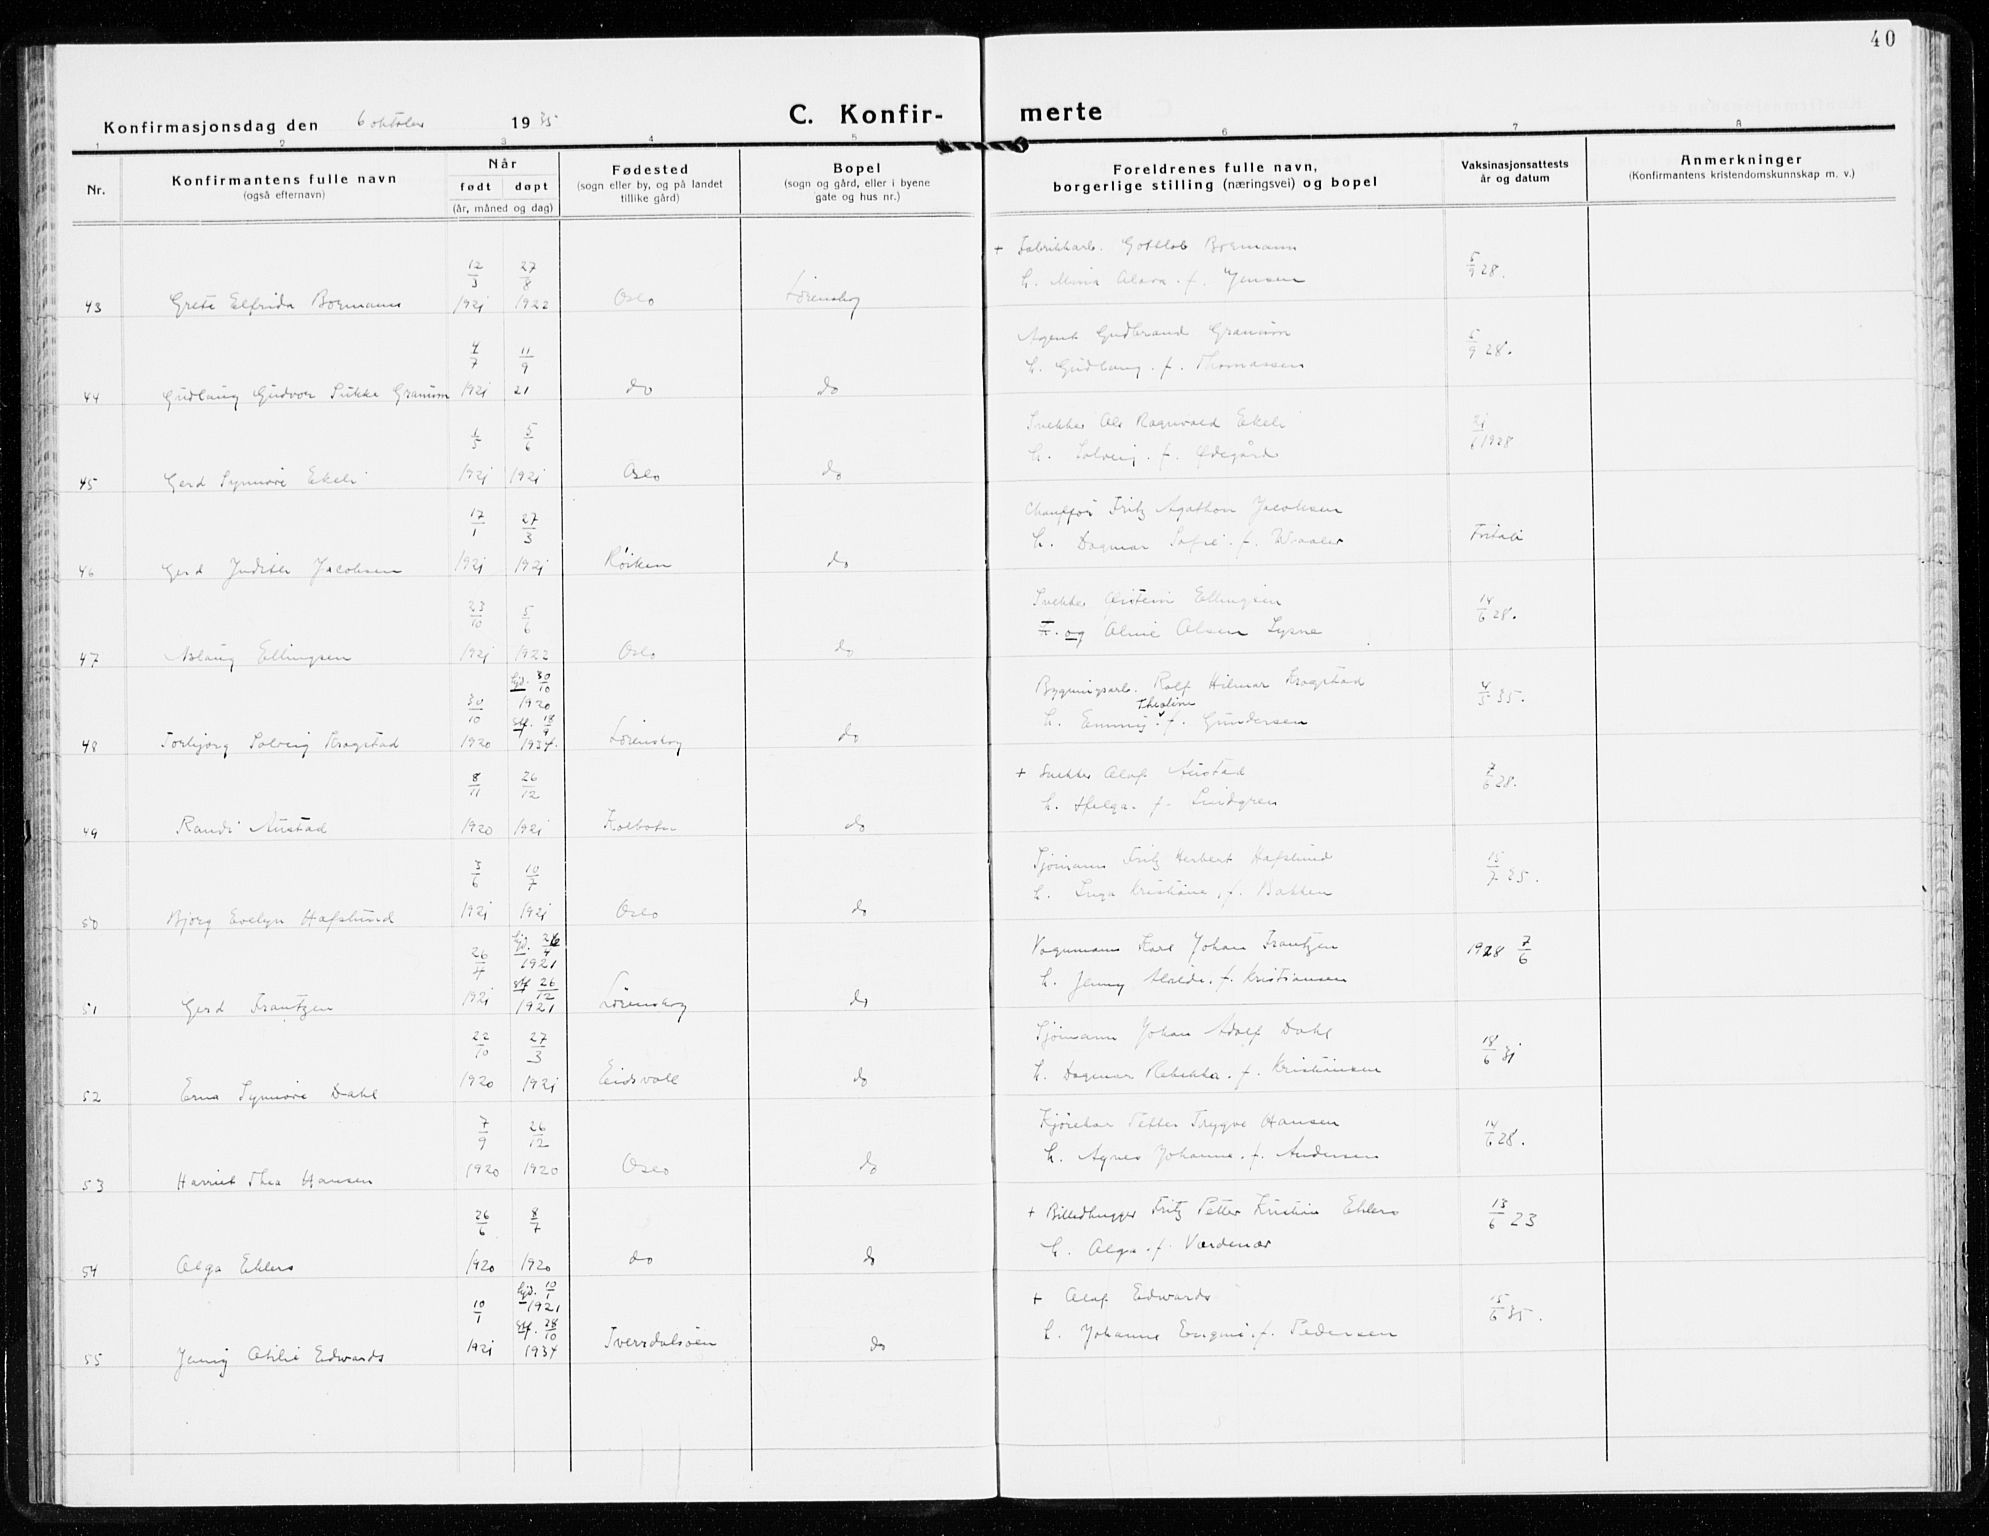 40
Konfirmasjonsdag den 6 oktober 1935
C. Konfir-
merte
1 2 3 4 5 6 7 8
Nr.
Konfirmantens fulle navn
(også efternavn)
Når
født døpt
(år, måned og dag)
Fødested
(sogn eller by, og på landet
tillike gård)
Bopel
(sogn og gård, eller i byene
gate og hus nr.)
Foreldrenes fulle navn,
borgerlige stilling (næringsvei) og bopel
Vaksinasjonsattests
år og datum
Anmerkninger
(Konfirmantens kristendomskunnskap m. v.)
12/3 27/8 + Fabrikkarb. Gottlob Bormann 5/9 28.
43 Grete Elfrida Bormann 1921 1922 Oslo Lørenskog h. Mina Alava. f. Jensen
4/7 11/9 Agent Gudbrand Granum 5/9 28.
44 Gudlaug Gudvor Granum 1921 21 do do h. Gudlaug. f. Thomassen
1/5 5/6 Snekker Ole Ragnvald Ekeli 21/6 1928
45 Gerd Synnøve Ekeli 1921 1921 Oslo do h. Solveig. f. Ødegård
17/1 27/3 Chauffør Fritz Agathon Jacobsen
46 Gerd Judith Jacobsen 1921 1921 Røiken do h. Dagmar Sofie. f. Waaler Fritatt
23/10 5/6 Snekker Øistein Ellingsen 14/6 28.
47 Aslaug Ellingsen 1921 1922 Oslo do og Aline Olsen Lysne
30/10 hjd. 30/10 1920 Bygningsarb. Rolf Hilmar Krogstad 4/5 35.
48 Torbjørg Solveig Krogstad 1920 stf. 18/9 1934. Lørenskog do h. Emmy Theoline f. Gundersen
8/11 26/12 + Snekker Olaf Austad 7/6 28.
49 Randi Austad 1920 1921 Kolbotn do h. Helga. f. Lindgren
3/6 10/7 Sjømann Fritz Herbert Hafslund 15/7 35.
50 Bjørg Evelyn Hafslund 1921 1921 Oslo do h. Inga Kristine, f. Bakken
26/4 hjd. 26/4 1921 Vognmann Karl Johan Frantzen 1928 7/6
51 Gerd Frantzen 1921 stf 26/12 1921 Lørenskog do h. Jenny Alvilde. f. Kristiansen
22/10 27/3 Sjømann Johan Adolf Dahl 18/6 31
52 Erna Synnøve Dahl 1920 1921 Eidsvoll do h. Dagmar Rebekka. f. Kristiansen
7/9 26/12 Kjørekar Petter Trygve Hansen 14/6 28.
53 Harriet Thea Hansen 1920 1920 Oslo do h. Agnes Johanne. f. Andersen
26/6 8/7 + Billedhugger Fritz Petter Kristian Ehlers 13/6 23
54 Olga Ehlers 1920 1920 do do h. Olga. f. Værdenær
10/1 hjd. 10/1 1921 + Olaf Edwards 15/6 35.
55 Jenny Otilie Edwards 1921 stf. 28/10 1934 Tverrdalsøen do h. Johanne f. Pedersen